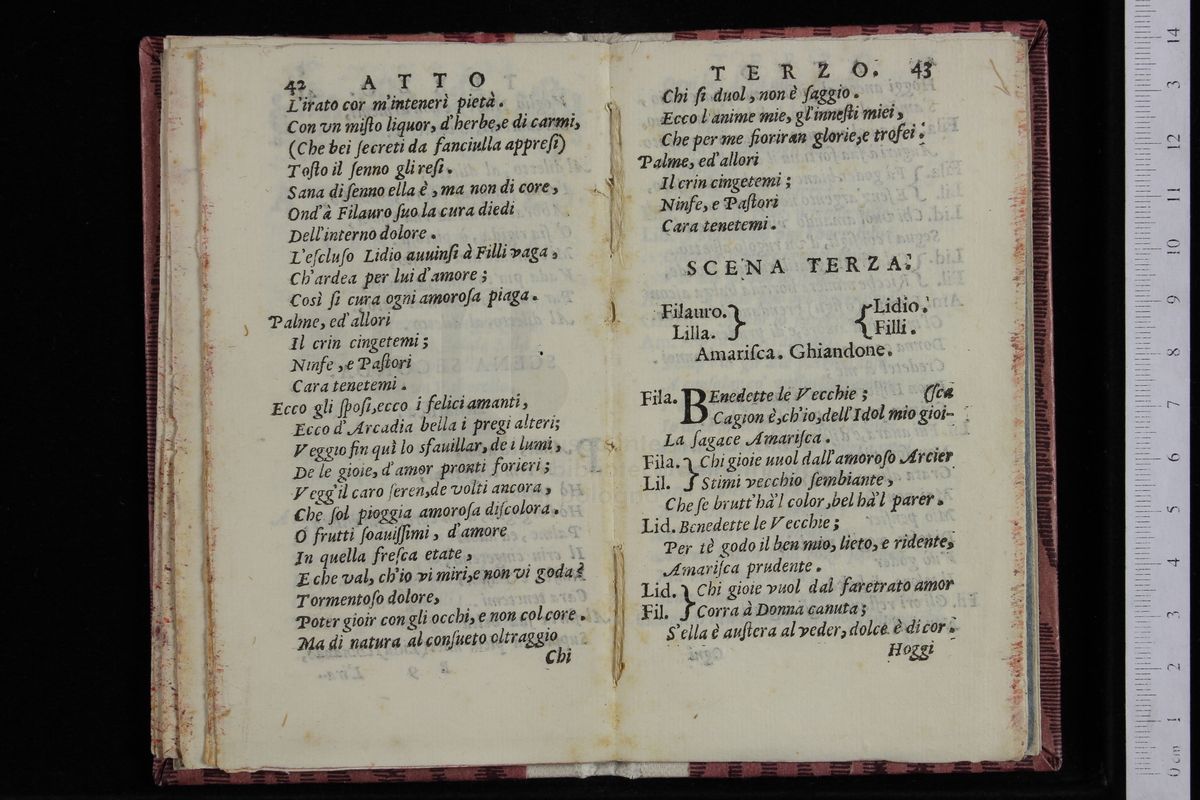 42 ATTO
L'irato cor m'intenerì pietà.
Con vn miſto liquor, d'herbe, e di carmi,
(Che bei ſecreti da fanciulla appreſi)
Toſto il ſenno gli reſi.
Sana di ſenno ella è, ma non di core,
Ond'à Filauro ſuo la cura diedi
Dell'interno dolore.
L'eſcluſo Lidio auuinſi à Filli vaga,
Ch'ardea per lui d'amore;
Così ſi cura ogni amoroſa piaga.
Palme, ed'allori
Il crin cingetemi;
Ninfe, e Paſtori
Cara tenetemi.
Ecco gli ſpoſi, ecco i felici amanti,
Ecco d'Arcadia bella i pregi alteri;
Veggio fin quì lo sfauillar, de i lumi,
De le gioie, d'amor pronti forieri;
Vegg'il caro ſeren, de volti ancora,
Che ſol pioggia amoroſa diſcolora.
O frutti ſoauiſſimi, d'amore
In quella freſca etate,
E che val, ch'io vi miri, e non vi goda?
Tormentoſo dolore,
Poter gioir con gli occhi, e non col core.
Ma di natura al conſueto oltraggio
Chi
TERZO. 43
Chi ſi duol, non è ſaggio.
Ecco l'anime mie, gl'inneſti miei,
Che per me fioriran glorie, e trofei.
Palme, ed'allori
Il crin cingetemi;
Ninfe, e Paſtori
Cara tenetemi.
SCENA TERZA.
Filauro. } { Lidio.
Lilla. } { Filli.
Amariſca. Ghiandone.
Fila. BEnedette le Vecchie; (ſca
Cagion è, ch'io, dell'Idol mio gioi-
La ſagace Amariſca.
Fila. } Chi gioie uuol dall'amoroſo Arcier
Lil. } Stimi vecchio ſembiante,
Che ſe brutt'hà'l color, bel hà'l parer.
Lid. Benedette le Vecchie;
Per tè godo il ben mio, lieto, e ridente,
Amariſca prudente.
Lid. } Chi gioie vuol dal faretrato amor
Fil. } Corra à Donna canuta;
S'ella è auſtera al veder, dolce è di cor.
Hoggi
14
13
12
11
10
9
8
7
6
5
4
3
2
1
0 cm